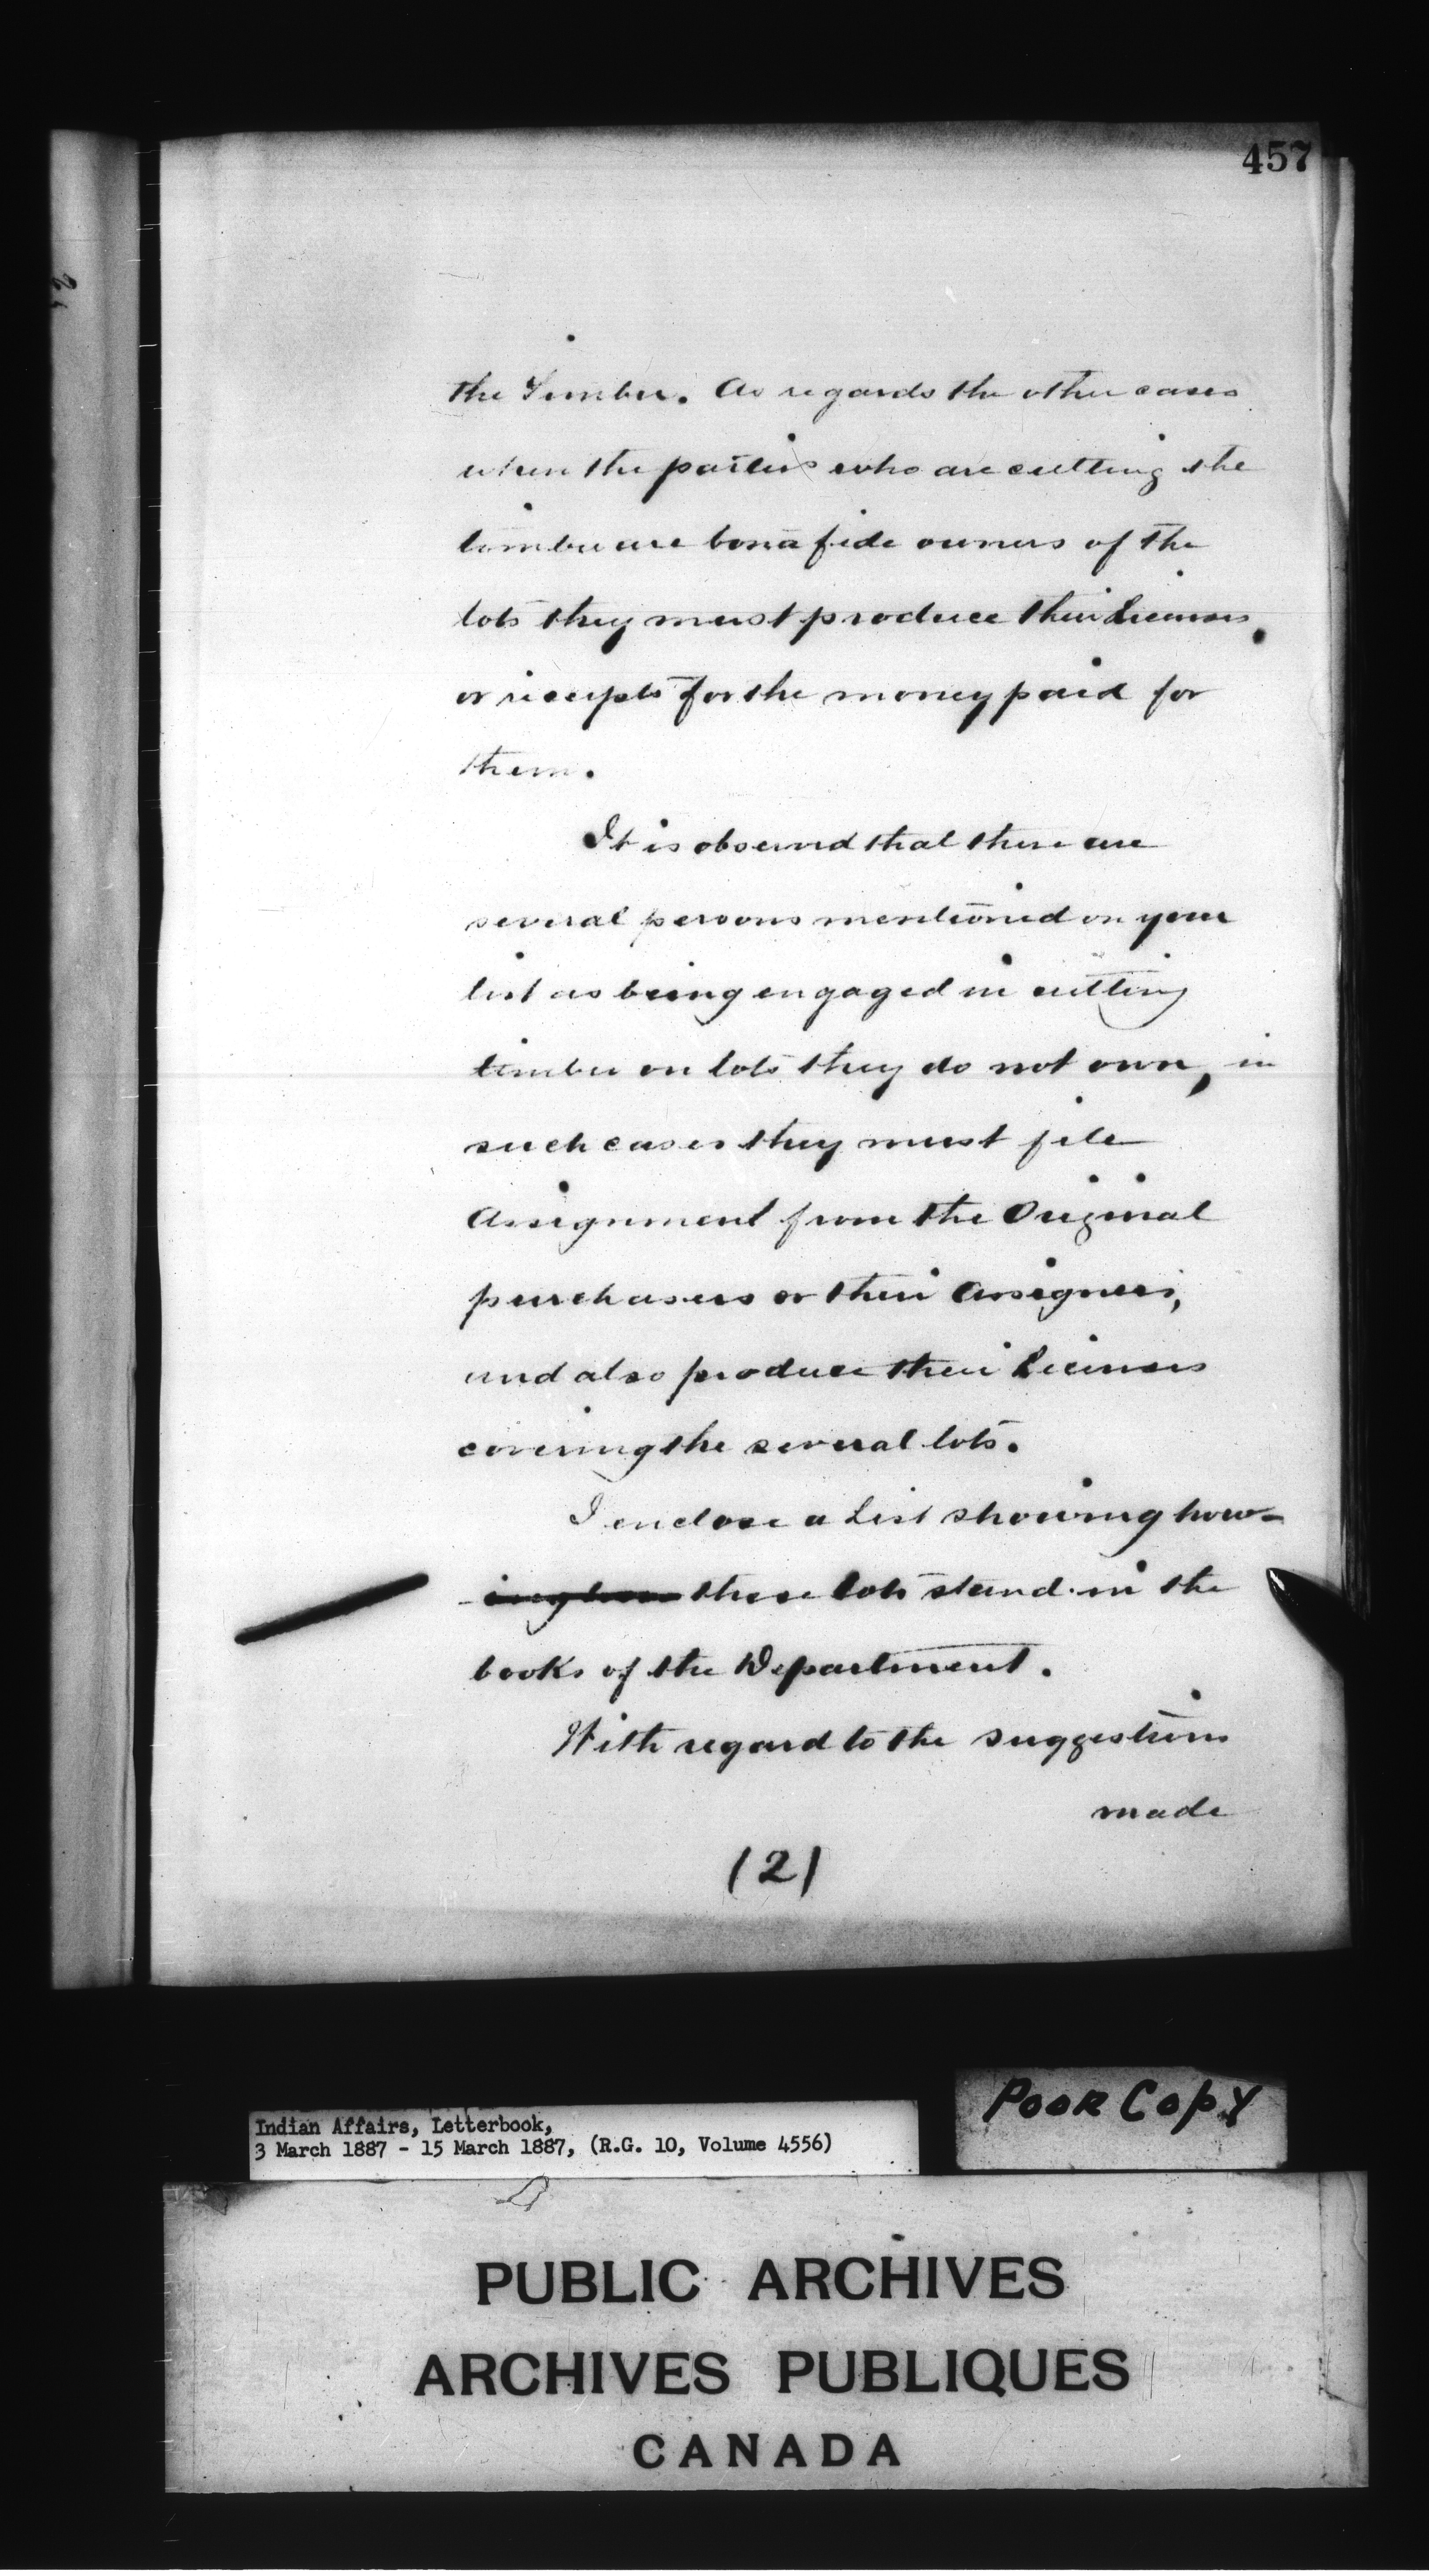 457
the Timber. As regards the other cases
when the parties who are cutting the
timber are bona fide owners of the
lots they must produce their Licenses
or receipts for the money paid for
them.
It is observed that there are
several persons mentioned on your
list as being engaged in cutting
timber on lots they do not own, in
such cases they must file
Assignment from the Original
purchasers or their Assignees,
and also produce their Licenses
covering the several lots.
I enclose a List showing how
these lots stand in the
books of the Department.
With regard to the suggestions
made
(2)
Poor Copy
Indian Affairs, Letterbook,
3 March 1887 - 15 March 1887, (R.G. 10, Volume 4556)
PUBLIC ARCHIVES
ARCHIVES PUBLIQUES
CANADA